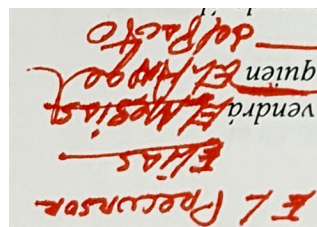 EL PRECURSOR
ELIAS
vendrá EL MESIAS
quien EL Angel
del PACTO